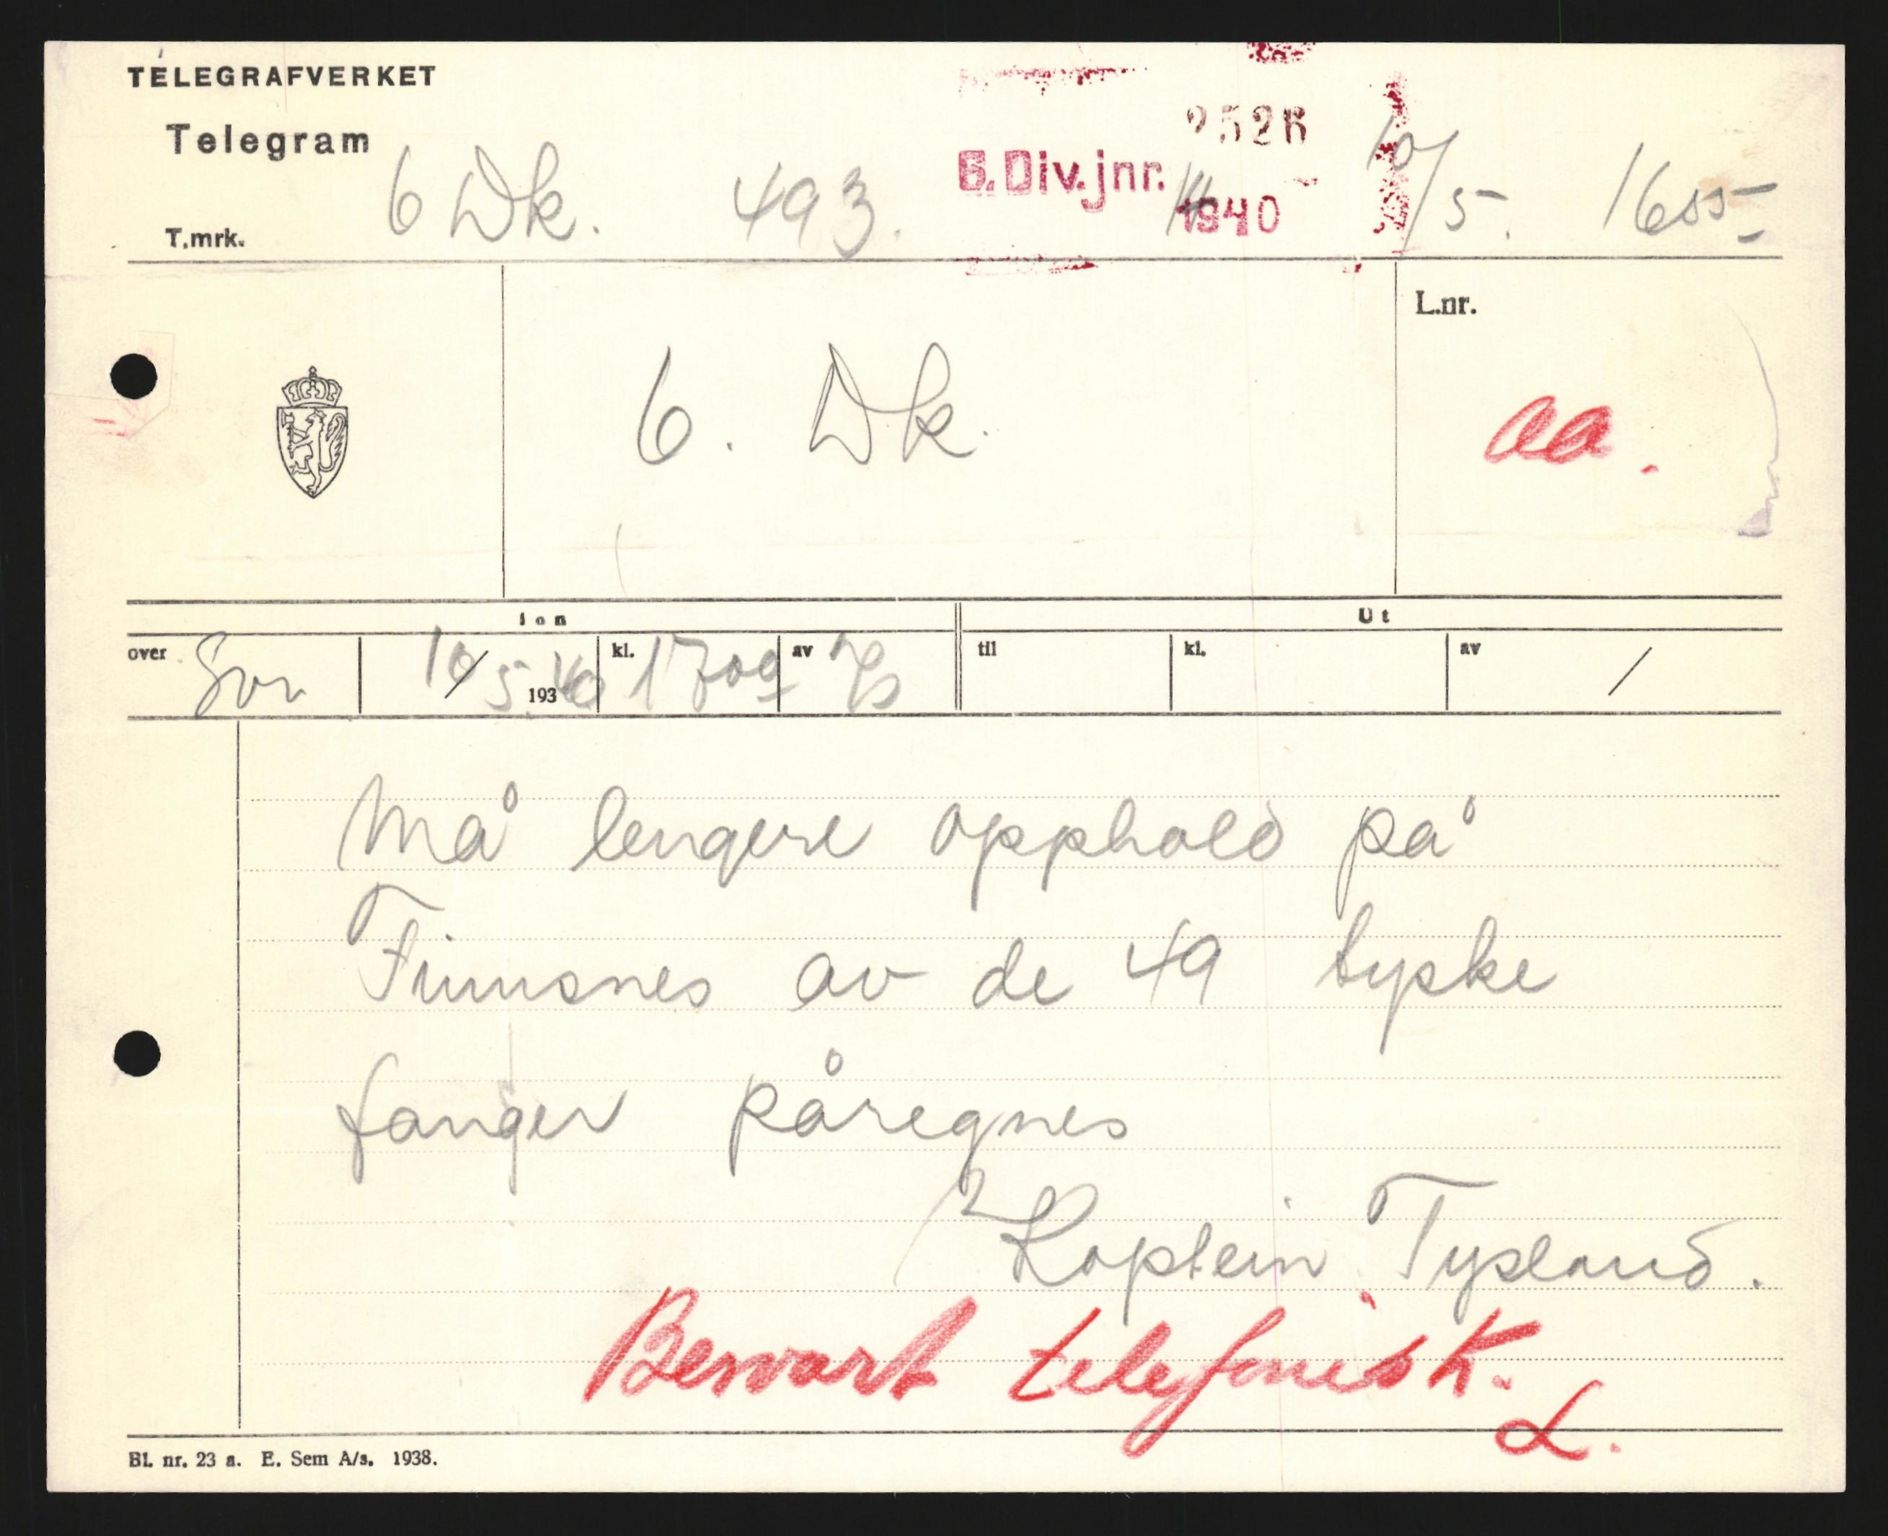 TELEGRAFVERKET
Telegram
T.mrk. 6 Dk. 493. 14 10/5. 1655
2526
6. Div. jnr. 1940
L.nr.
6. Dk.
aa.
Ut
over 10/5 193 40 kl. 1700 av til kl. av /
Må lengere opphold på
Finnsnes av de 49 tyske
fanger påregnes
Kaptein Tysland.
Besvart telefonisk.
L.
Bl. nr. 23 a. E. Sem A/s. 1938.